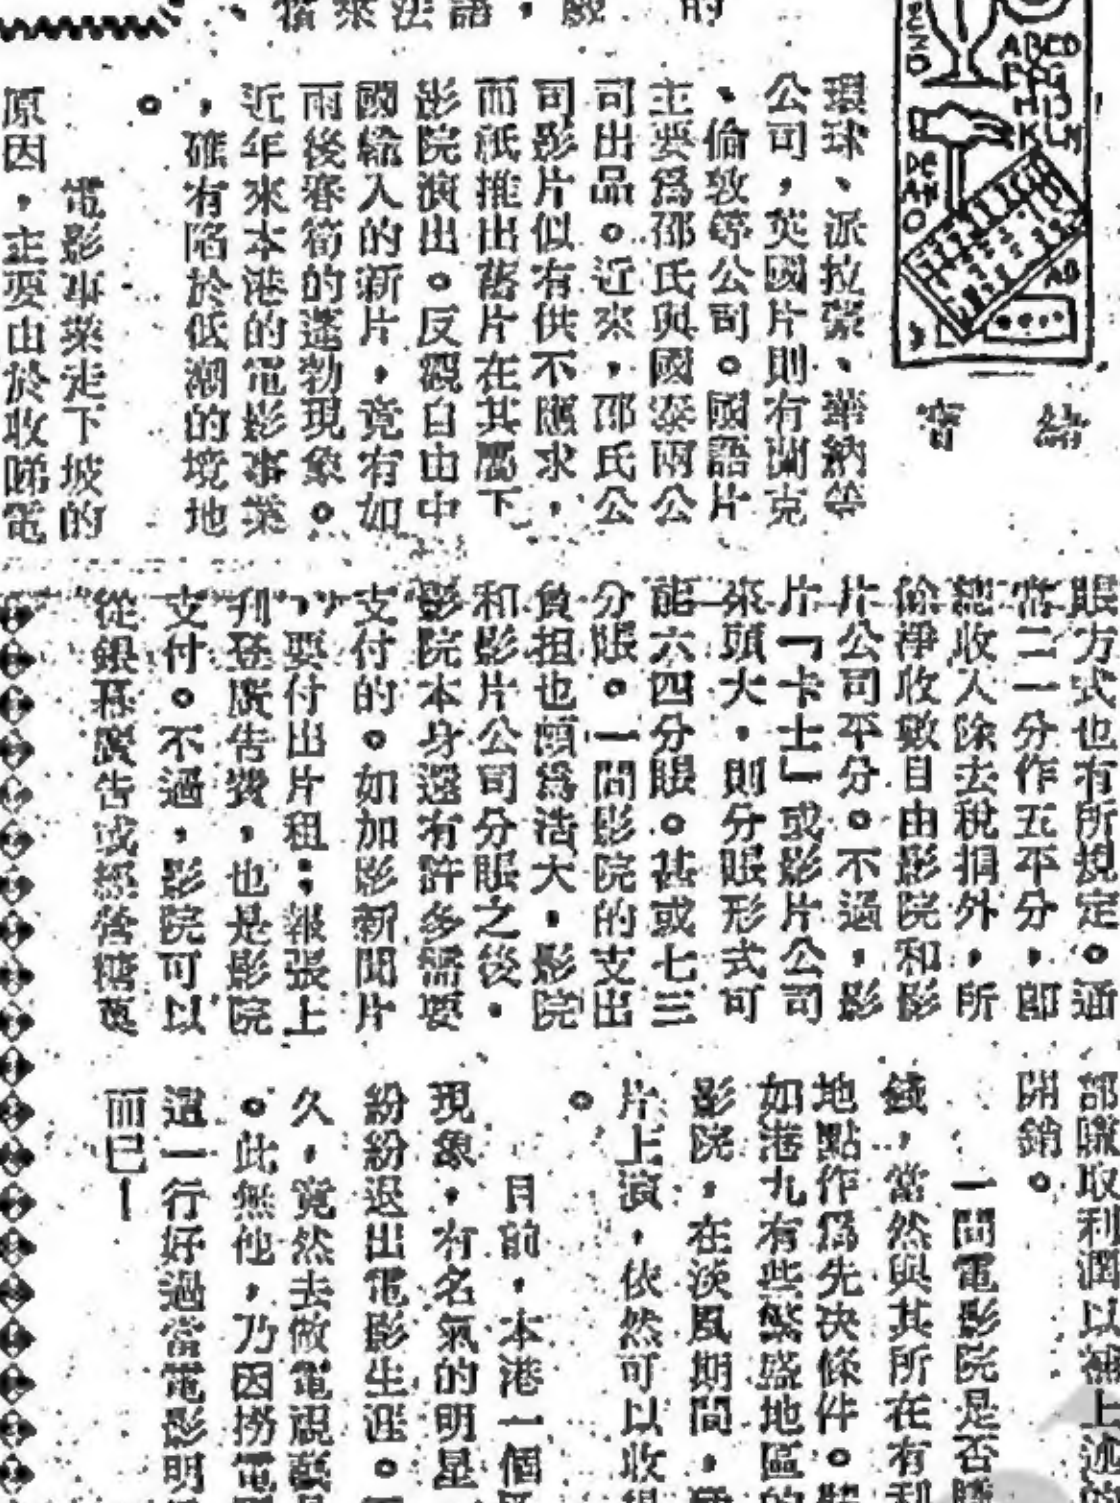 環球、派拉蒙、華納等
公司，英國片則有蘭克
、倫敦等公司。國語片
主要爲邵氏與國泰兩公
司出品。近來，邵氏公
司影片似有供不應求，
而祇推出舊片在其屬下
影院演出。反觀自由中
國輸入的新片，竟有如
雨後春筍的蓬勃現象。
近年來本港的電影事業
，確有陷於低潮的境地
。
電影事業走下坡的
原因，主要由於收睇電
眼方式也有所規定。通
常二一分作五平分，即
總收入除去稅捐外，所
餘淨收數目由影院和影
片公司平分。不過，影
片「卡士」或影片公司
來頭大，則分賬形式可
能六四分賬。甚或七三
分賬。一間影院的支出
負担也頗爲浩大，影院
和影片公司分賬之後，
影院本身還有許多需要
支付的。如加影新聞片
，要付出片租；報張上
刋登廣告費，也是影院
支付。不過，影院可以
從銀幕廣告或經營糖菓
部賺取利潤以補上述的
開銷。
一間電影院是否賺
錢，當然與其所在有利
地點作爲先决條件。
如港九有些繁盛地區的
影院，在淡風期間，
片上演，依然可以收得
。
目前，本港一個
現象，有名氣的明星
紛紛退出電影生涯。
久，竟然去做電視藝
。此無他，乃因撈電
這一行好過當電影明
而已！
ABCD
HIJ
KLM